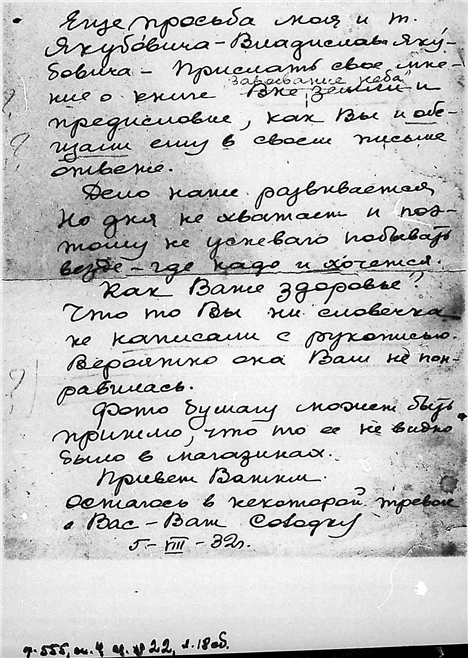 Еще просьба моя и т.
Якубо́вича - Владислава Яку-
бовича - Прислать свое мне-
завоевание неба"
ние о книге Вне земли и
предисловие, как Вы и обе-
щали ему в своем письме
ответе.
Дело наше развивается,
Но дня не хватает и поэ-
тому не успеваю побывать
везде - где надо и хочется.
Как Ваше здоровье"
Что то Вы ни словечка
не написали с рукописью.
Вероятно она Вам не пон-
равилась.
Фото бумагу может быть
пришлю, что то ее не видно
было в магазинах.
Привет Вашим
Остаюсь в некоторой тревоге
о Вас - Ваш
5 - VIII - 32г.
ф-555, оп. 4 22, л. 18 об.